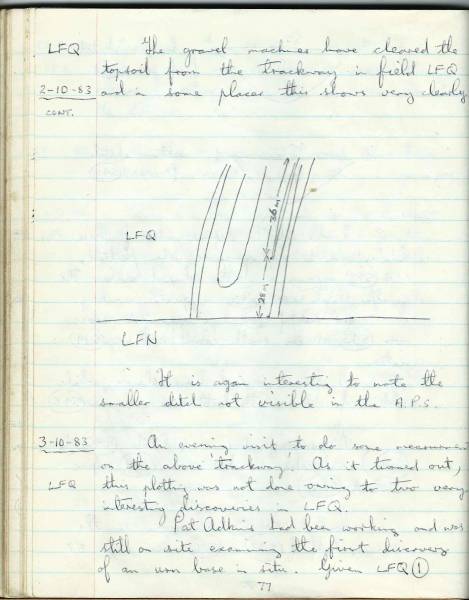 LFQ The gravel machines have cleared the
topsoil from the trackway in field LFQ
2-10-83 and in some places this shows very clearly
CONT.
36m
LFQ
28m
LFN
It is again interesting to note the
smaller ditch not visible in the A.P.s.
3-10-83 An evening visit to do some measurement
on the above 'trackway'. As it turned out,
LFQ this plotting was not done owing to two very
interesting discoveries in LFQ.
Pat Adkins had been working and was
still on site examining the first discovery
of an urn base in situ. Given LFQ 1
77